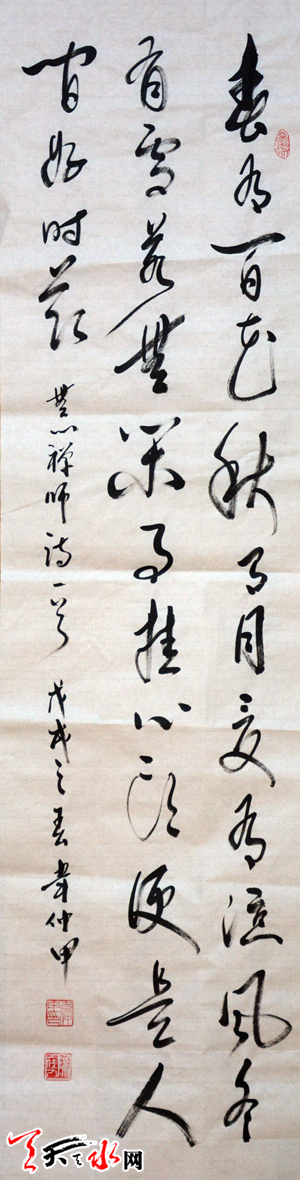 春有百花秋有月夏有凉风冬
有雪若无闲事挂心头便是人
间好时节
无心禅师诗一首 戊戌之春 韦仲甲
天天天水网